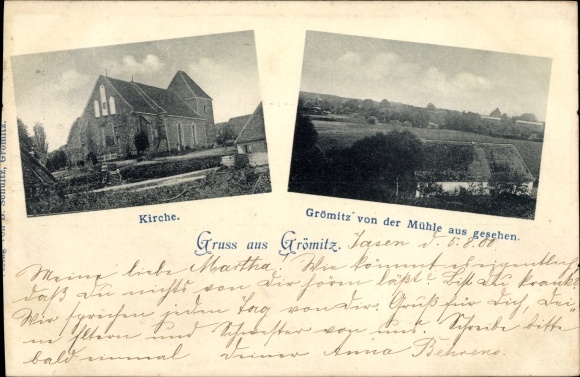 Kirche.
Grömitz von der Mühle aus gesehen.
Gruss aus Grömitz.
Jasen d. 5.8.00
Meine liebe Martha! Wie kommt es eigentlich
daß Du nichts von dir hören läßt? Bist Du krank?
Wir sprechen jeden Tag von dir. Grüß für dich, Dei-
ne Eltern und Schwester von mir. Schreibe bitte
bald einmal deiner Anna Behrens.
Schultz, Grömitz.